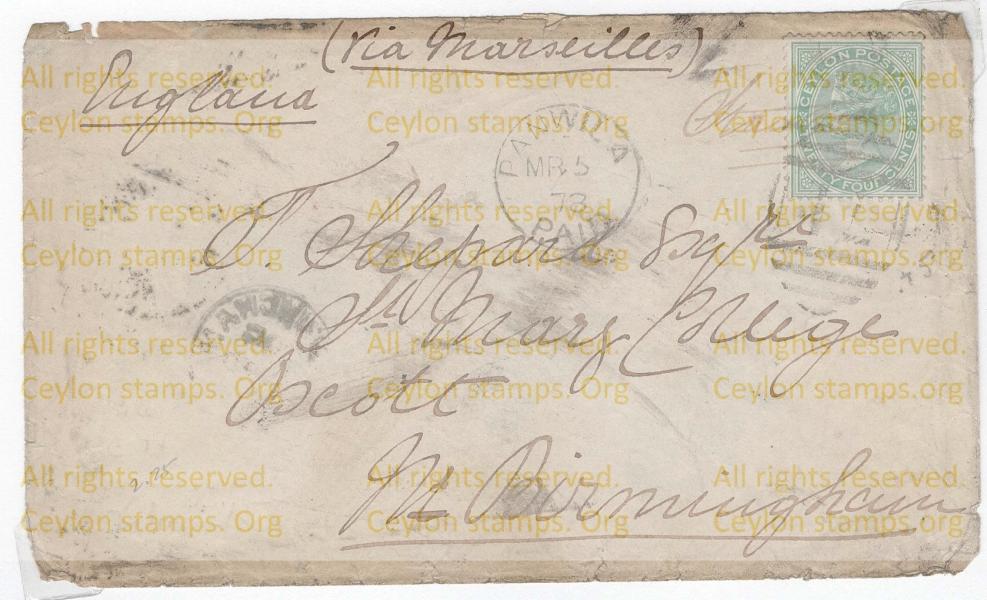 (Via Marseilles)
England
CEYLON POSTAGE
TWENTY FOUR CENTS
PANWILA
MR 5
73
PAID
T. Shepard Esqre
St Marys College
Oscott
Nr Birmingham
2.25
All rights reserved.
Ceylon stamps. Org
All rights reserved.
Ceylon stamps. Org
All rights reserved.
Ceylon stamps. Org
All rights reserved.
Ceylon stamps. Org
All rights reserved.
Ceylon stamps. Org
All rights reserved.
Ceylon stamps. Org
All rights reserved.
Ceylon stamps. Org
All rights reserved.
Ceylon stamps. Org
All rights reserved.
Ceylon stamps. Org
All rights reserved.
Ceylon stamps. Org
All rights reserved.
Ceylon stamps. Org
All rights reserved.
Ceylon stamps. Org